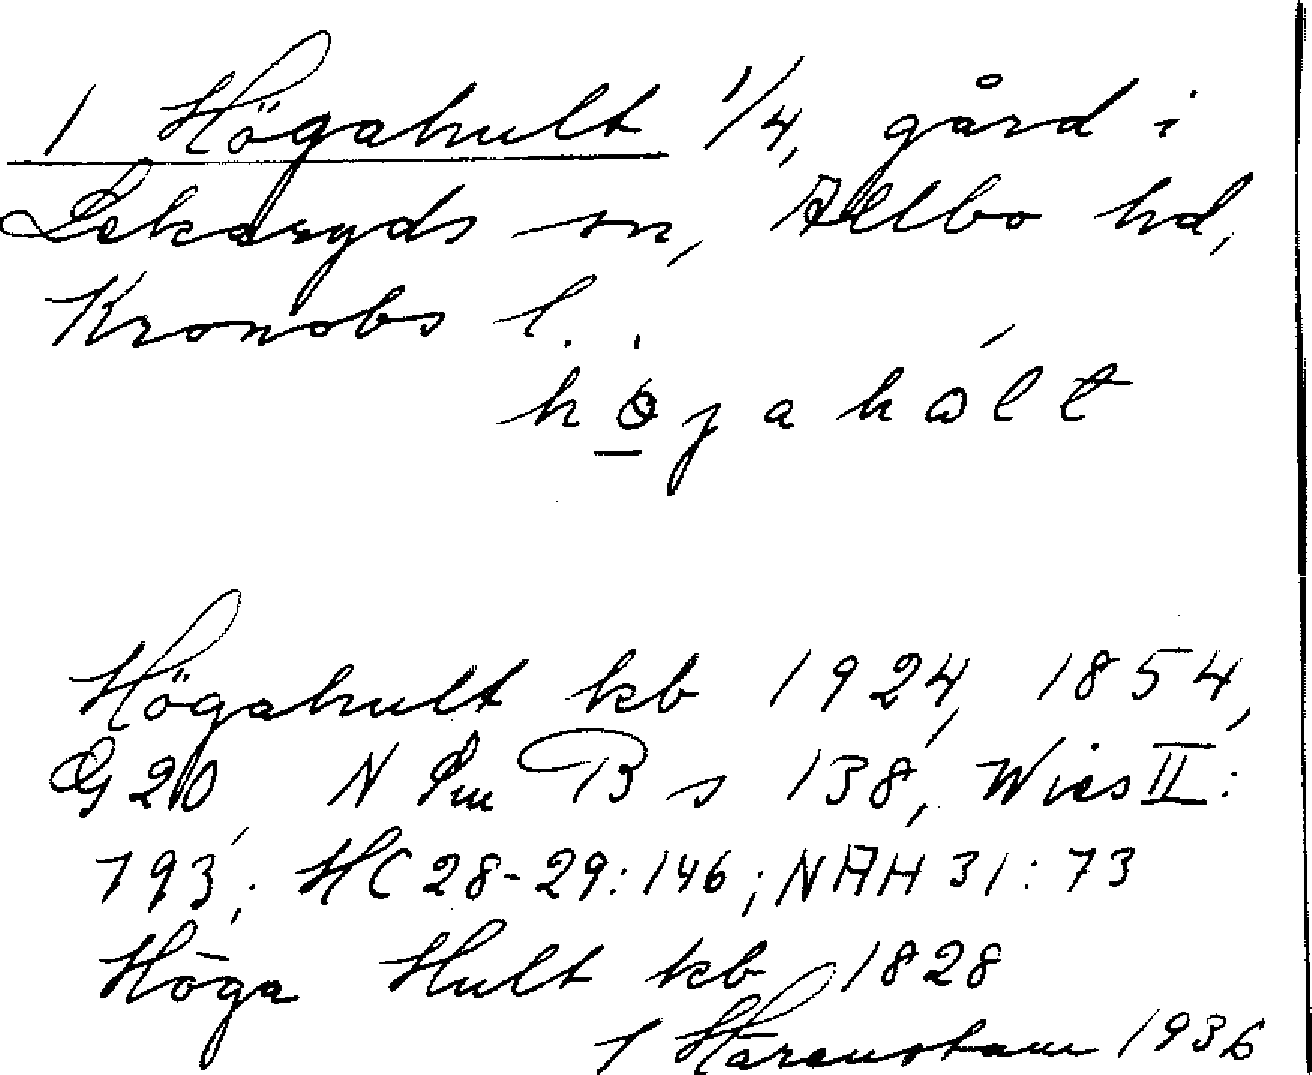 1 Högahult 1/4, gård i
Lekaryds sn, Allbo hd,
Kronobs l.
högahult kb 1924, 1854,
G 20, N Sm B s 138, Wies II:
793; HC 28-29:146; NAH 31:73
Höga Hult kb 1828
1936